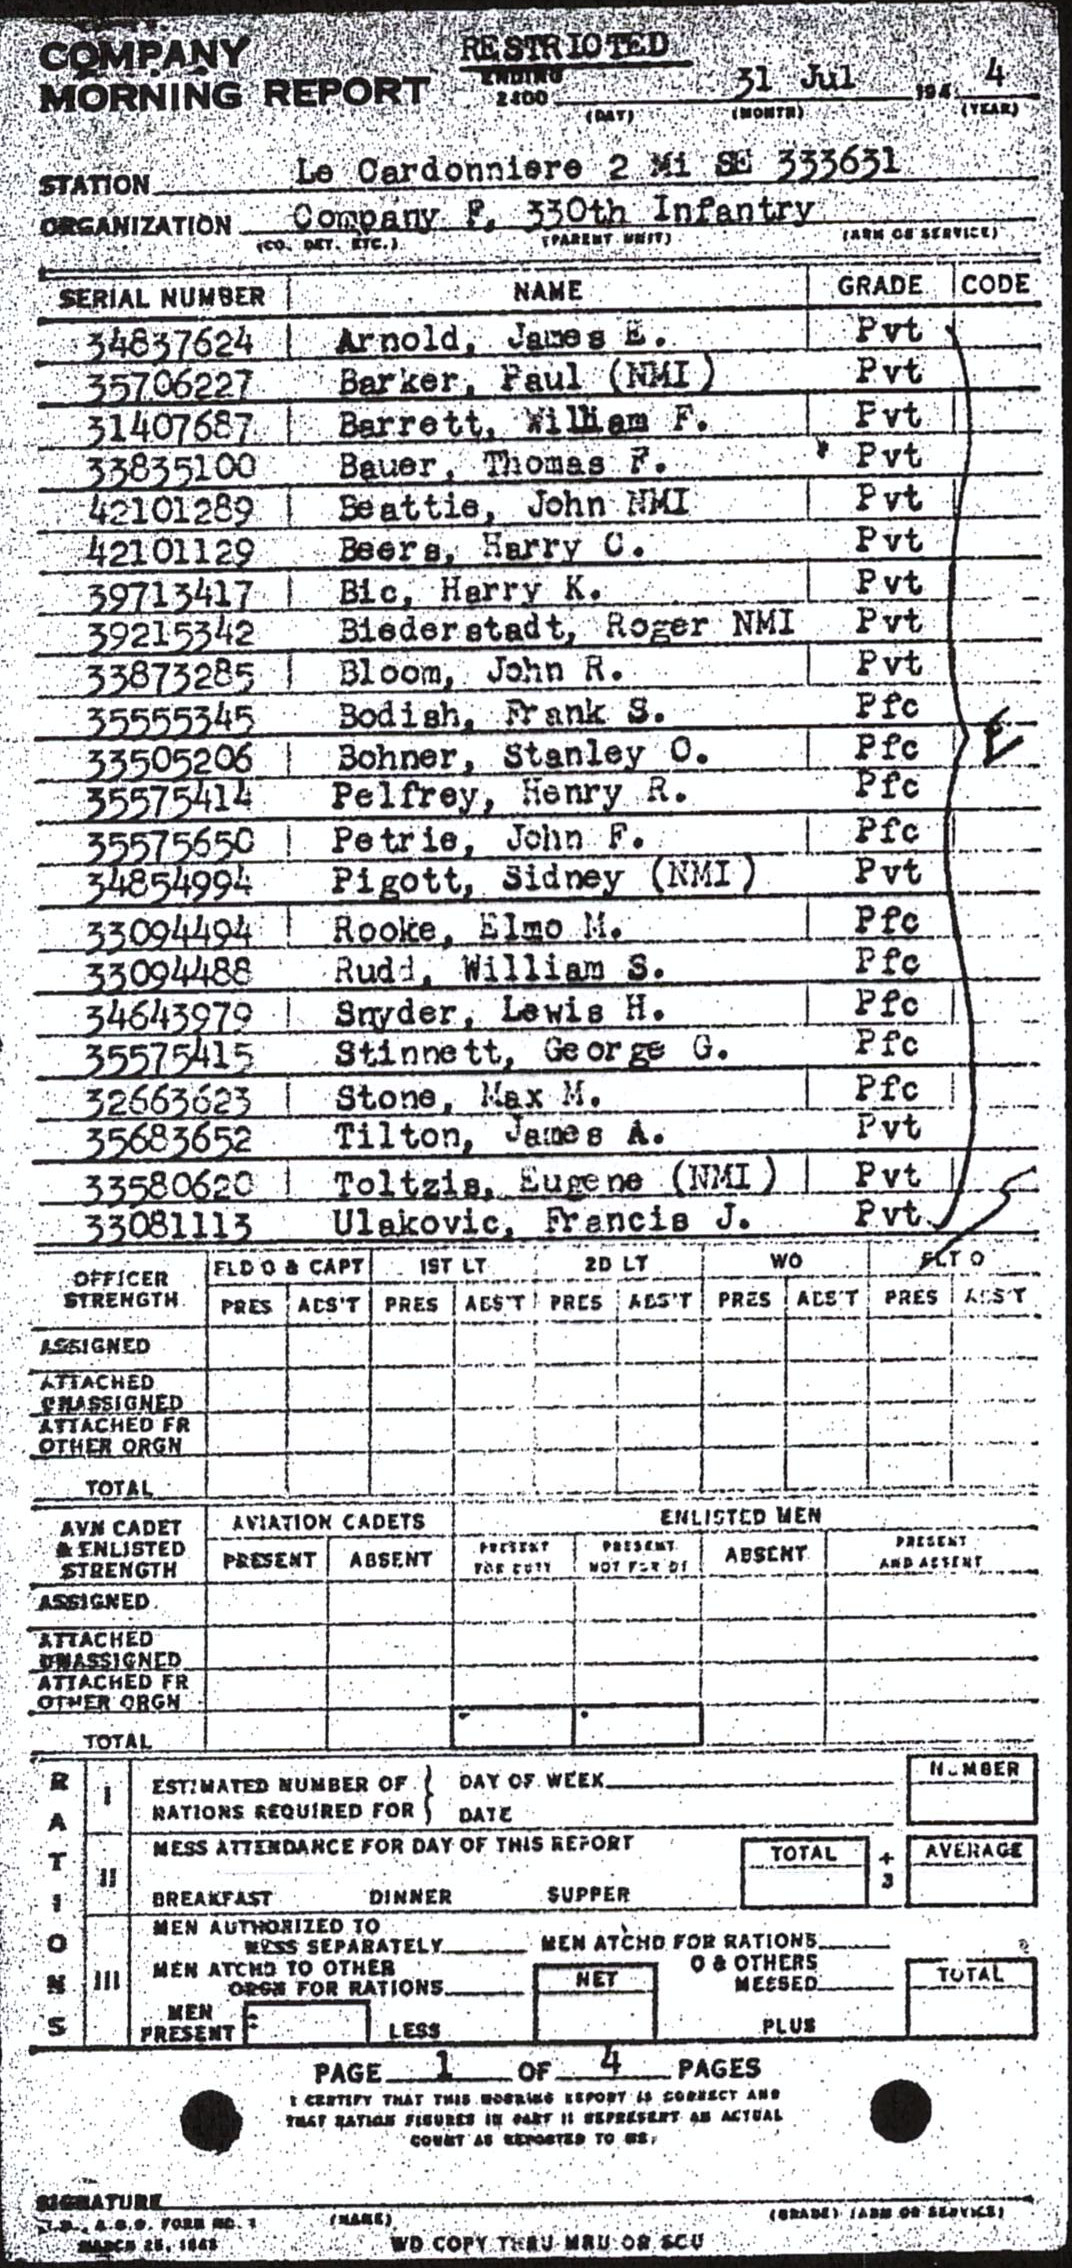 COMPANY
MORNING REPORT
RESTRICTED
ENDING
2400 31 Jul 194 4
(DAY) (MONTH) (YEAR)
STATION Le Cardonniere 2 Mi SE 333631
ORGANIZATION Company F, 330th Infantry
(CO. DET. ETC.) (PARENT UNIT) (ARM OR SERVICE)
SERIAL NUMBER NAME GRADE CODE
34837624 Arnold, James E. Pvt
35706227 Barker, Paul (NMI) Pvt
31407687 Barrett, William F. Pvt
33835100 Bauer, Thomas F. Pvt
42101289 Beattie, John NMI Pvt
42101129 Beers, Harry C. Pvt
39713417 Bic, Harry K. Pvt
39215342 Biederstadt, Roger NMI Pvt
33873285 Bloom, John R. Pvt
35555345 Bodish, Frank S. Pfc
33505206 Bohner, Stanley O. Pfc
35575414 Pelfrey, Henry R. Pfc
35575650 Petrie, John F. Pfc
34854994 Pigott, Sidney (NMI) Pvt
33094494 Rooke, Elmo M. Pfc
33094488 Rudd, William S. Pfc
34643979 Snyder, Lewis H. Pfc
35575415 Stinnett, George G. Pfc
32663623 Stone, Max M. Pfc
35683652 Tilton, James A. Pvt
33580620 Toltzis, Eugene (NMI) Pvt
33081113 Ulakovic, Francis J. Pvt
OFFICER STRENGTH FLD O & CAPT 1ST LT 2D LT WO FLT O
PRES ABS'T PRES ABS'T PRES ABS'T PRES ABS'T PRES ABS'T
ASSIGNED
ATTACHED
UNASSIGNED
ATTACHED FR
OTHER ORGN
TOTAL
AVN CADET & ENLISTED STRENGTH AVIATION CADETS ENLISTED MEN
PRESENT ABSENT PRESENT FOR DUTY PRESENT NOT FOR DY ABSENT PRESENT AND ABSENT
ASSIGNED
ATTACHED
UNASSIGNED
ATTACHED FR
OTHER ORGN
TOTAL
RATIONS
I ESTIMATED NUMBER OF DAY OF WEEK NUMBER
RATIONS REQUIRED FOR DATE
II MESS ATTENDANCE FOR DAY OF THIS REPORT TOTAL ÷ 3 AVERAGE
BREAKFAST DINNER SUPPER
III MEN AUTHORIZED TO
MESS SEPARATELY MEN ATCHD FOR RATIONS
MEN ATCHD TO OTHER O & OTHERS
ORGN FOR RATIONS NET MESSED TOTAL
MEN
PRESENT LESS PLUS
PAGE 1 OF 4 PAGES
I CERTIFY THAT THIS MORNING REPORT IS CORRECT AND
THAT RATION FIGURES IN PART II REPRESENT AN ACTUAL
COUNT AS REPORTED TO ME.
SIGNATURE
(NAME) (GRADE) (ARM OR SERVICE)
W.D., A.G.O. FORM NO. 1
MARCH 25, 1943
WD COPY THRU MRU OR SCU